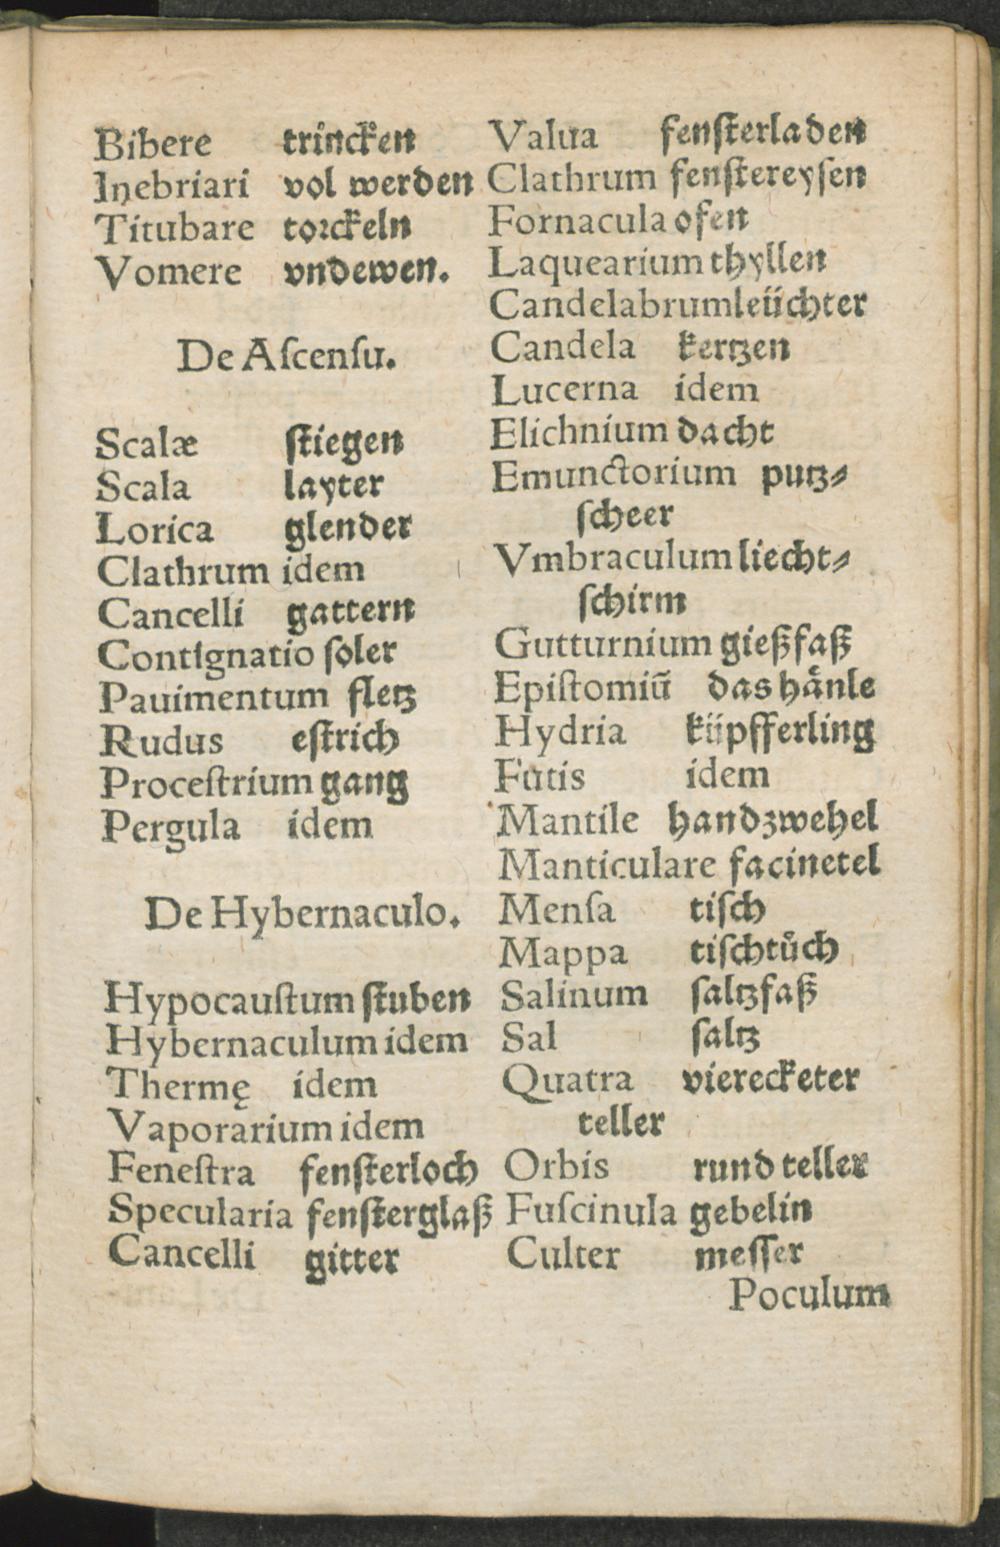 Bibere trincken
Inebriari vol werden
Titubare torckeln
Vomere vndewen.
De Aſcenſu.
Scalæ ſtiegen
Scala layter
Lorica glender
Clathrum idem
Cancelli gattern
Contignatio ſoler
Pauimentum fletz
Rudus eſtrich
Proceſtrium gang
Pergula idem
De Hybernaculo.
Hypocauſtum ſtuben
Hybernaculum idem
Thermę idem
Vaporarium idem
Feneſtra fenſterloch
Specularia fenſterglaß
Cancelli gitter
Valua fenſterladen
Clathrum fenſtereyſen
Fornacula ofen
Laquearium thyllen
Candelabrum leüchter
Candela kertzen
Lucerna idem
Elichnium dacht
Emunctorium putz⸗
ſcheer
Vmbraculum liecht⸗
ſchirm
Gutturnium gießfaß
Epiſtomiũ das hånle
Hydria küpfferling
Futis idem
Mantile handzwehel
Manticulare facinetel
Menſa tiſch
Mappa tiſchtůch
Salinum ſaltzfaß
Sal ſaltz
Quatra vierecketer
teller
Orbis rund teller
Fuſcinula gebelin
Culter meſſer
Poculum